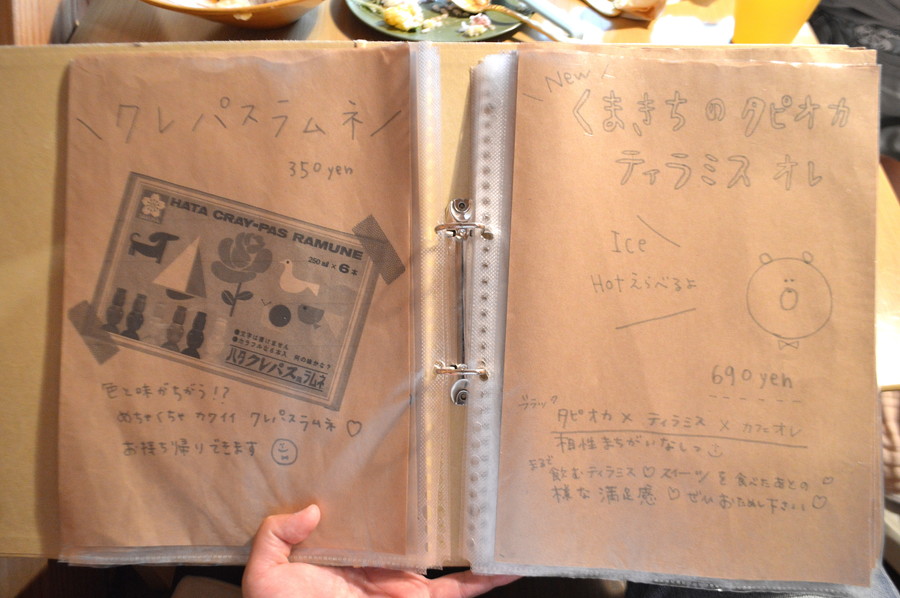 クレパスラムネ
350yen
HATA CRAY-PAS RAMUNE
250ml×6本
●文字は書けません
●カラフルな6本入
ハタクレパス®ラムネ
色と味がちがう!?
めちゃくちゃカワイイ クレパスラムネ♡
お持ち帰りできます
New!
くまきちのタピオカ
ティラミス オレ
Ice
Hotえらべるよ
690yen
ブラック
タピオカ×ティラミス×カフェオレ
相性まちがいなしっ
まるで
飲むティラミス♡スイーツを食べたあとの
様な満足感♡ぜひおためし下さい♡